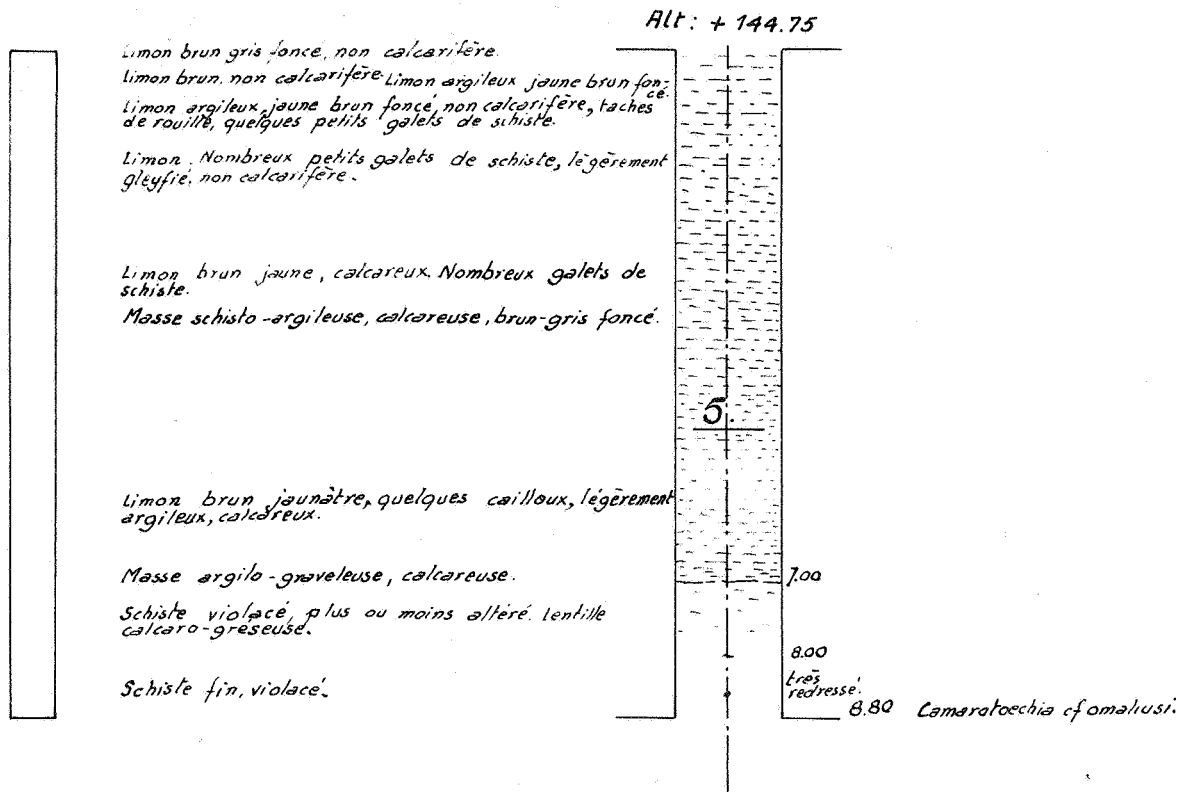 Alt: + 144.75
Limon brun gris foncé, non calcarifère.
Limon brun, non calcarifère. Limon argileux jaune brun fon-
cé.
Limon argileux, jaune brun foncé, non calcarifère, taches
de rouille, quelques petits galets de schiste.
Limon. Nombreux petits galets de schiste, légèrement
gleyfié, non calcarifère.
Limon brun jaune, calcareux. Nombreux galets de
schiste.
Masse schisto-argileuse, calcareuse, brun-gris foncé.
5.
Limon brun jaunâtre, quelques cailloux, légèrement
argileux, calcareux.
Masse argilo-graveleuse, calcareuse.
7.00
Schiste violacé, plus ou moins altéré. lentille
calcaro-gréseuse.
8.00
très
redressé.
Schiste fin, violacé.
8.80 Camarotoechia cf omaliusi.